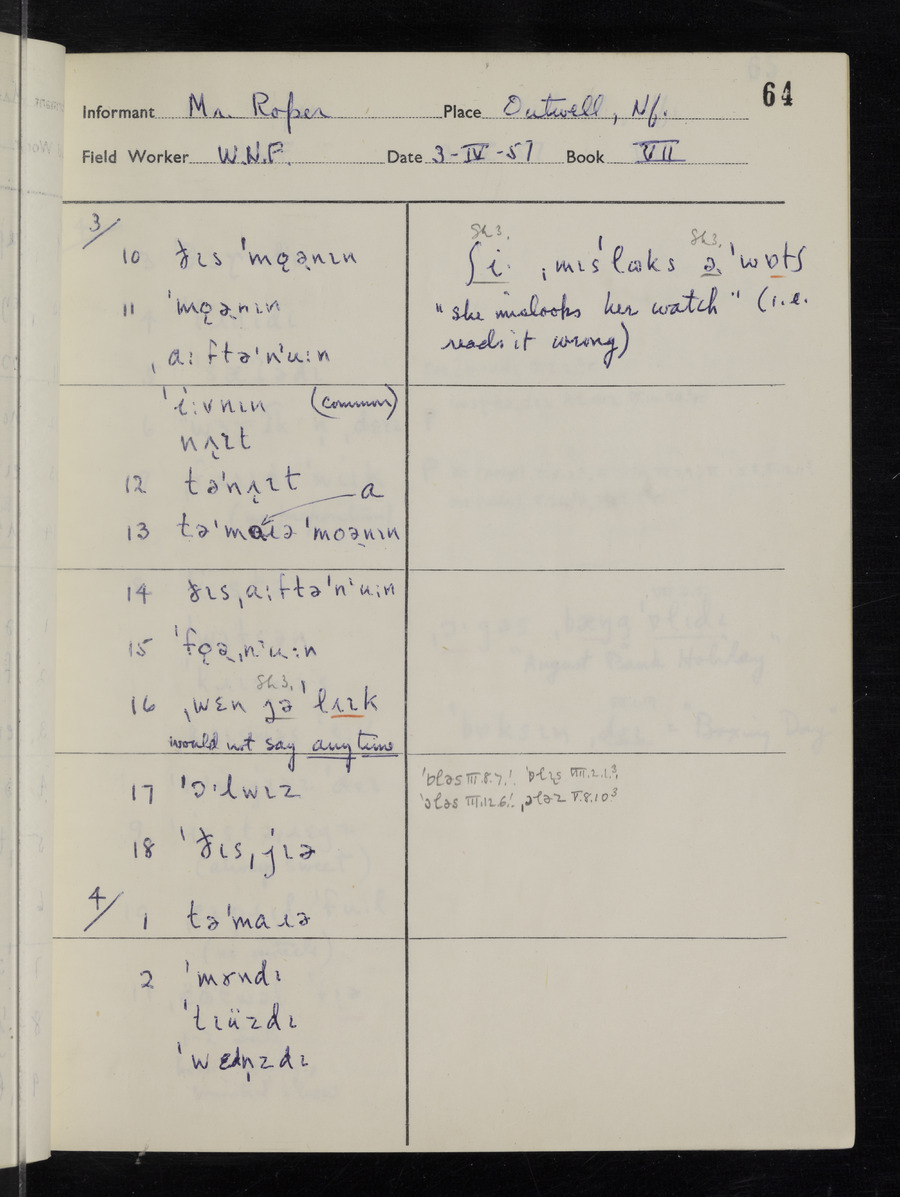 64
Informant Mr. Roper Place Outwell, Nf.
Field Worker W.N.F. Date 3-IV-57 Book VII
3/
10 ðɪs ˈmo̜ə̣nɪn
11 ˈmo̜ə̣nɪn
ˌa:ftəˈnˈu:n
ˈi:vnɪn (common)
nʌ̜ɪt
12 təˈnʌ̜ɪt
a
13 təˈmaɹə ˈmoə̣nɪn
14 ðɪsˌa:ftəˈnˈu:n
15 ˈfo̜əˌnˈu:n
Sh3.
16 ˌwɛn jə ˈlɪɪk
would not say any time
17 ˈɔ·lwɪz
18 ˈðɪsˌjɪə
4/
1 təˈmaɹə
2 ˈmɤndɪ
ˈtɪüzdɪ
ˈwɛdn̩zdɪ
Sh3. Sh3.
ʃi· ˌmɪsˈlɷks ə ˈwɒtʃ
"she mislooks her watch" (i.e.
reads it wrong)
III.8.7! VII.2.1.3,
III.12.6! V.8.10 3